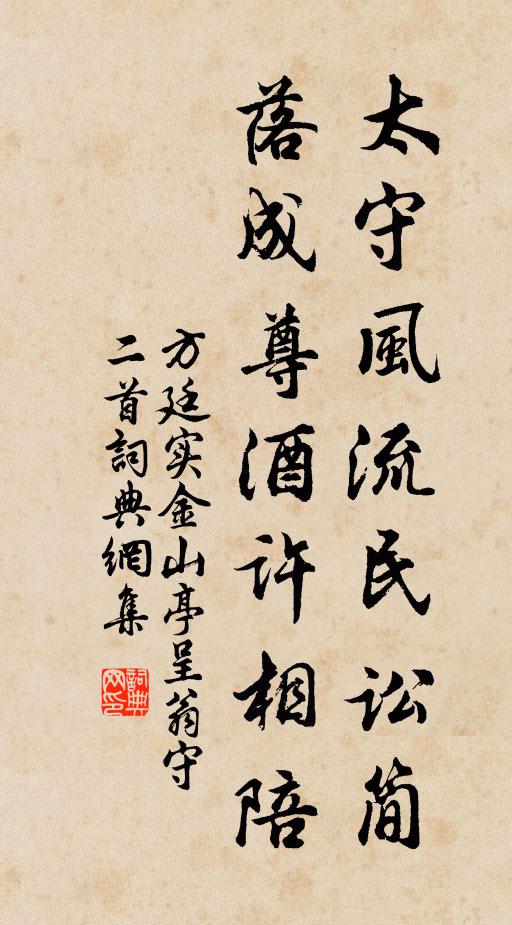 太守風流民訟简
落成尊酒許相陪
方廷实金山亭呈翁守
二首詞典網集
詞典
网印